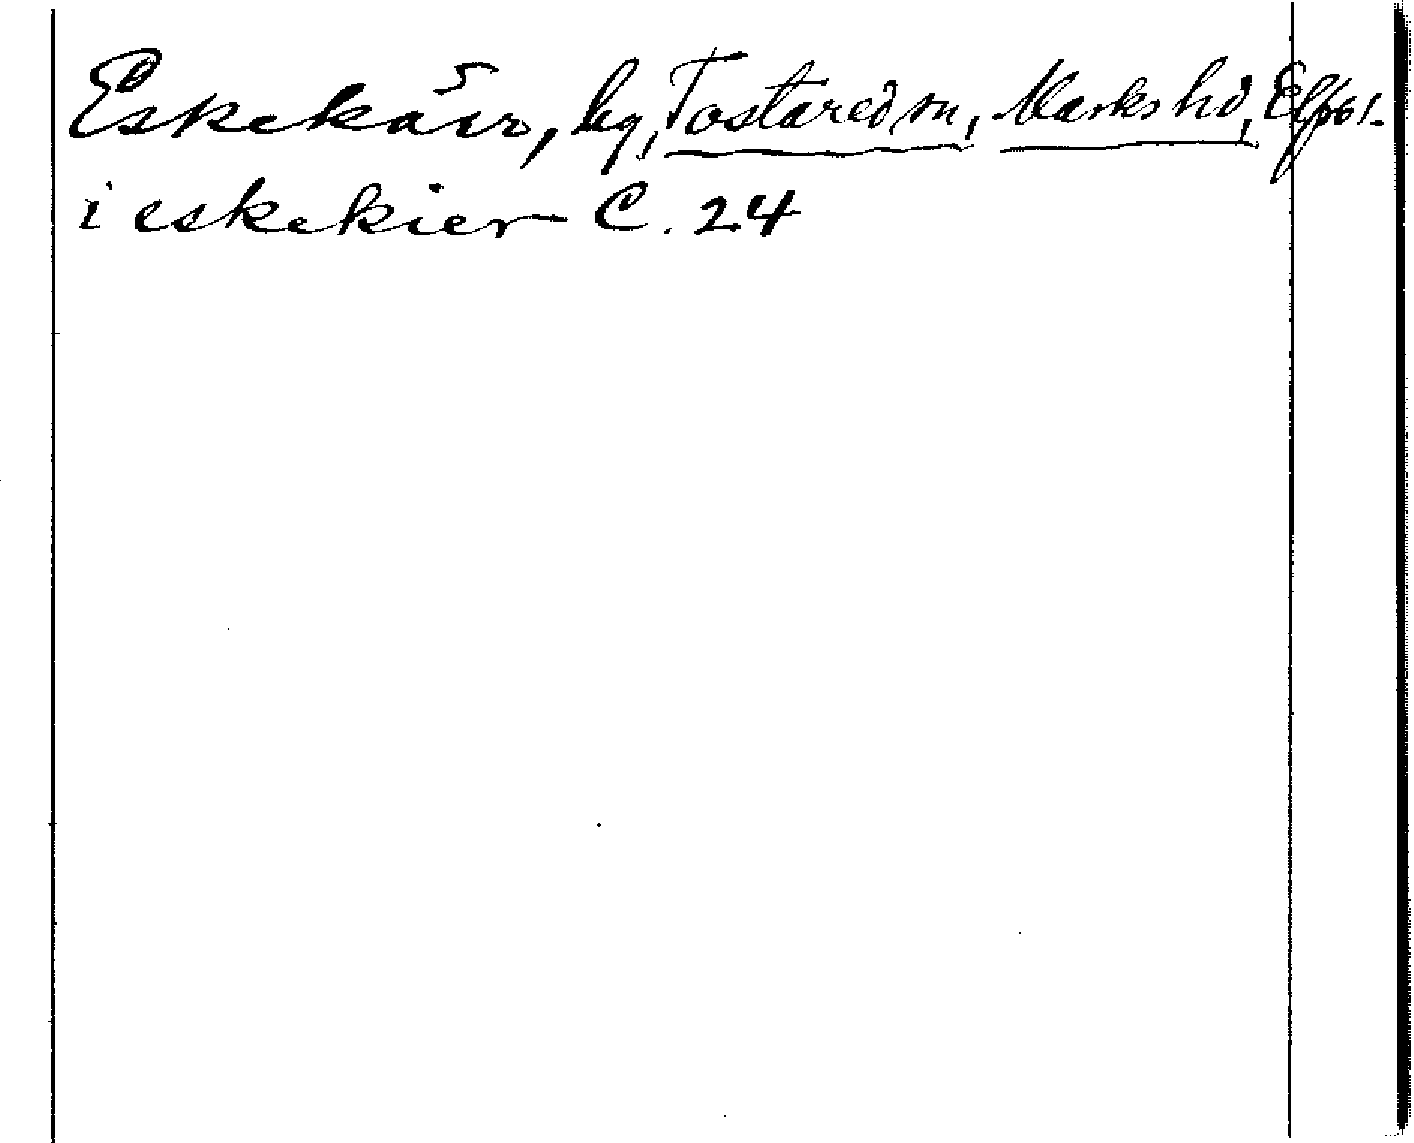 Eskekärr, by, Tostared sn, Marks hd, Elfsbl.
i eskekier C. 24